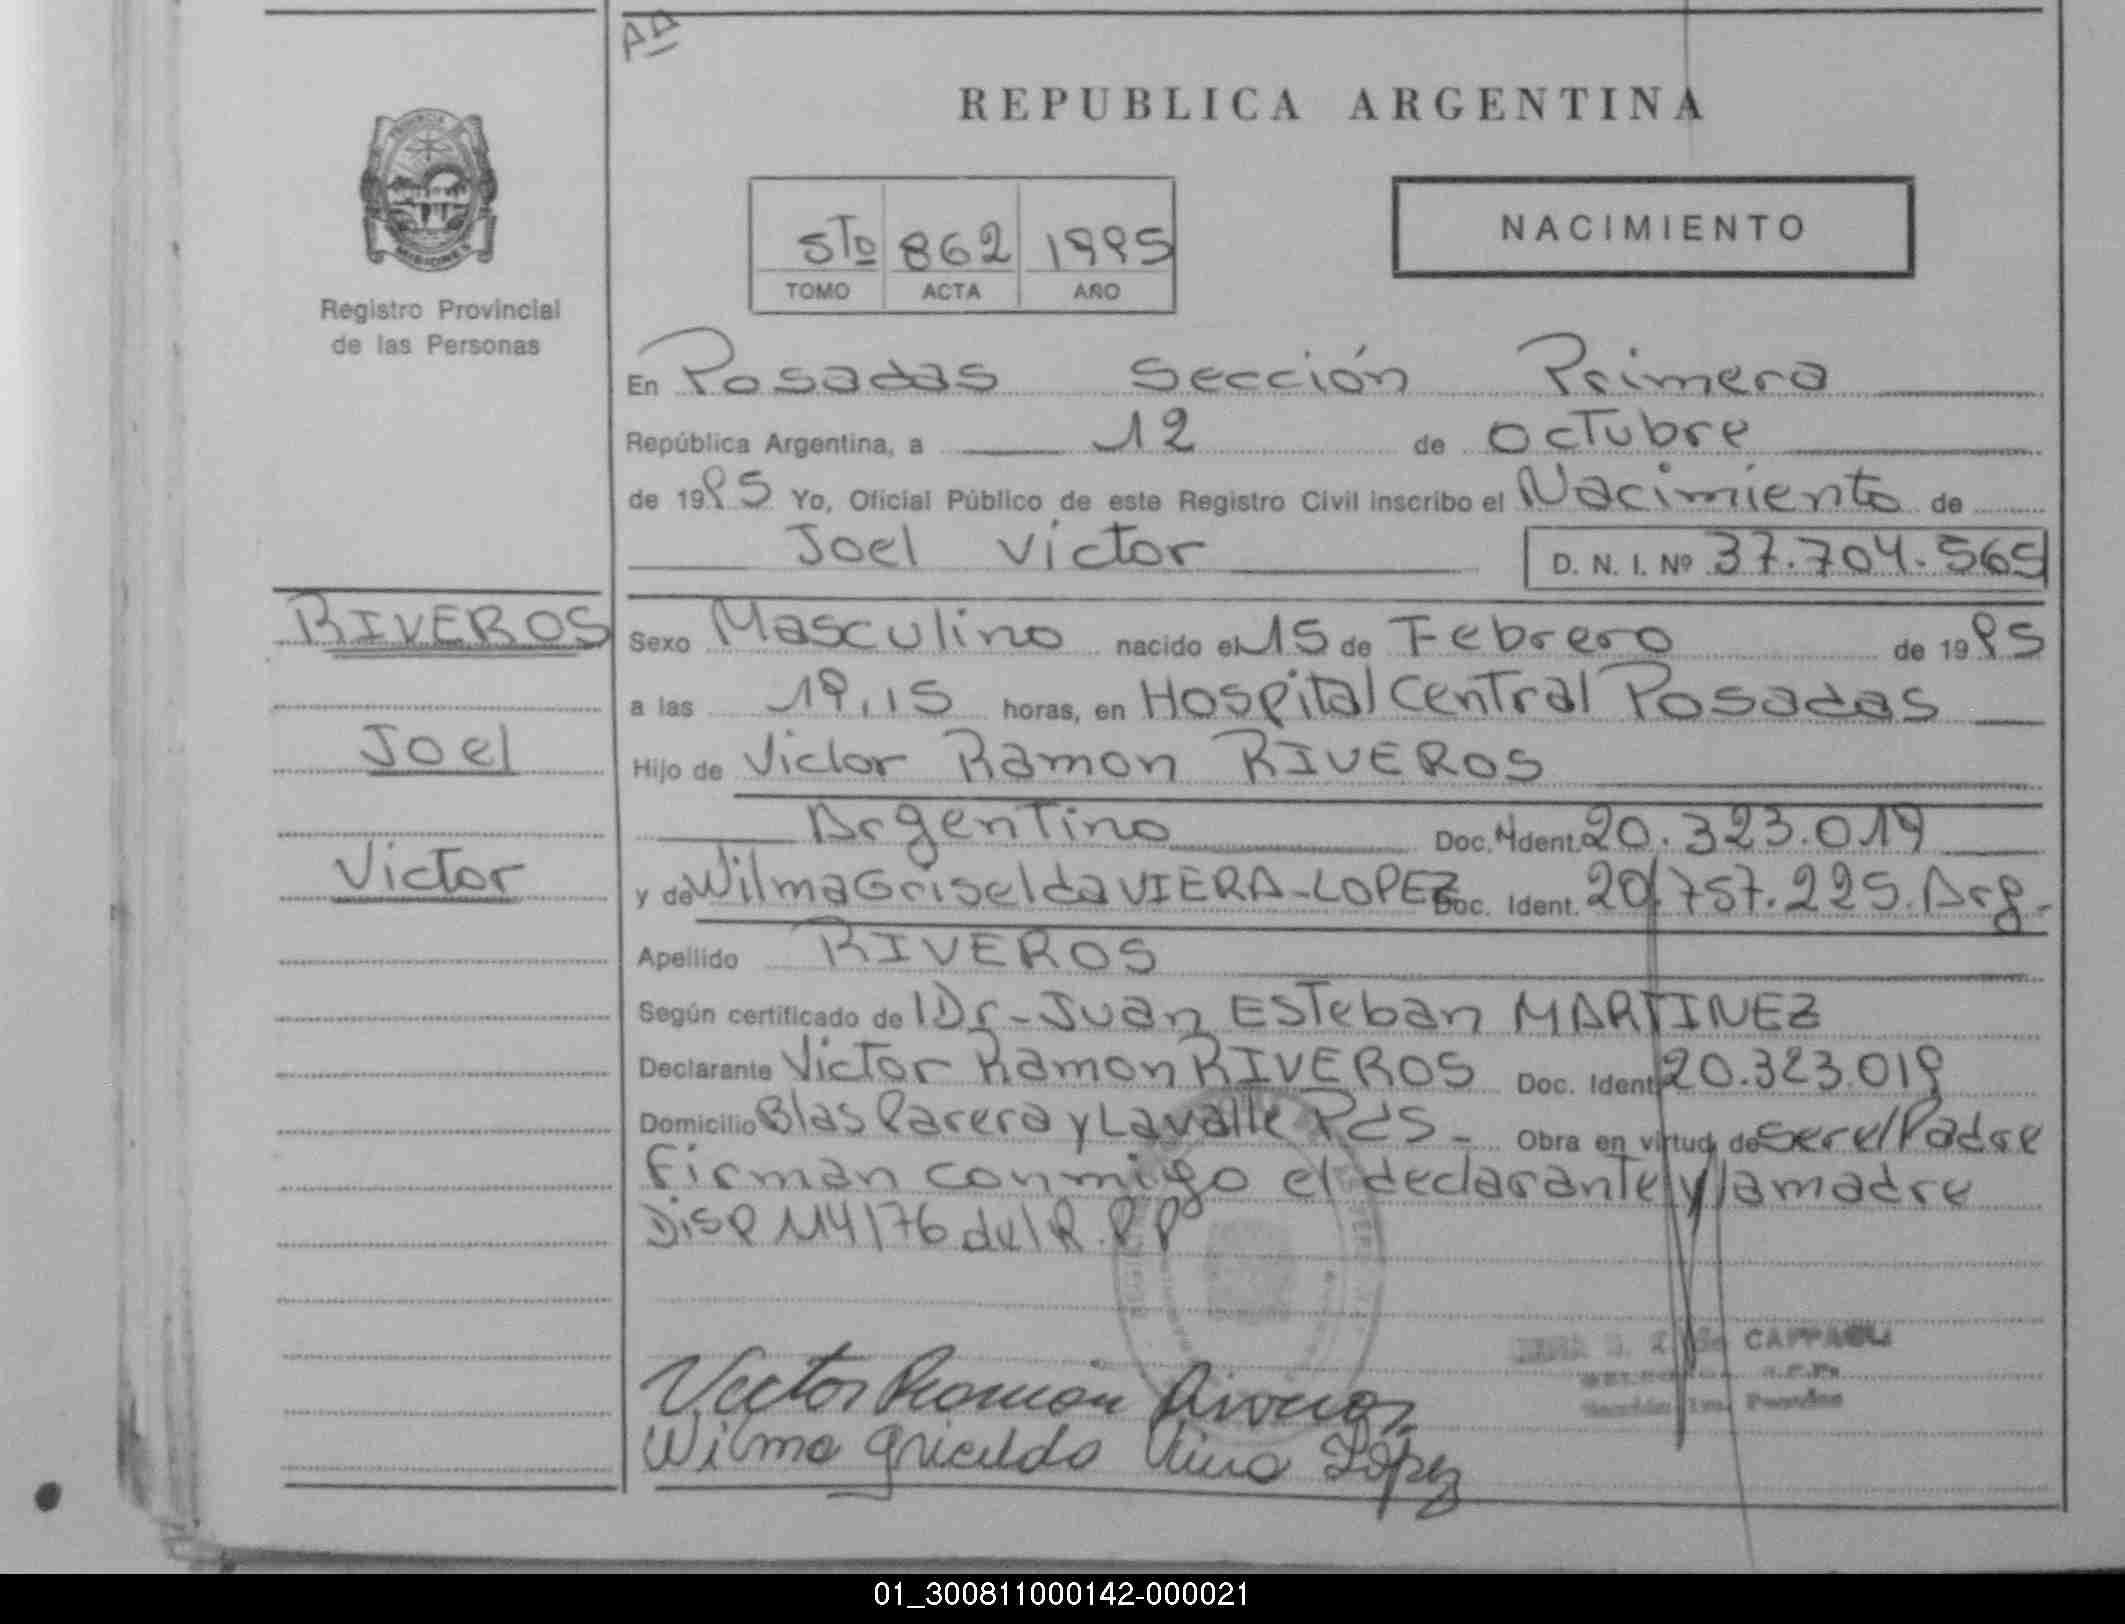 AA
REPUBLICA ARGENTINA
5to 862 1995
TOMO ACTA AÑO
NACIMIENTO
Registro Provincial
de las Personas
En Posadas Sección Primera
República Argentina, a 12 de Octubre
de 1995 Yo, Oficial Público de este Registro Civil inscribo el Nacimiento de
Joel Victor D. N. I. Nº 37.704.565
RIVEROS
Joel
Victor
Sexo Masculino nacido el 15 de Febrero de 1995
a las 19,15 horas, en Hospital Central Posadas
Hijo de Victor Ramon RIVEROS
Argentino Doc. Ident. 20.323.019
y de Wilma Griselda VIERA-LOPEZ Doc. Ident. 20.757.225. Arg.
Apellido RIVEROS
Según certificado de Dr-Juan Esteban MARTINEZ
Declarante Victor Ramon RIVEROS Doc. Ident 20.323.019
Domicilio Blas Parera y Lavalle Pds- Obra en virtud de ser el Padre
Firman conmigo el declarante y la madre
Disp 114/76 del R.P.P
de CAPPAGLI
Sección 1ra. Posadas
Victor Ramon Riveros
Wilma Griselda Viera López
01_300811000142-000021